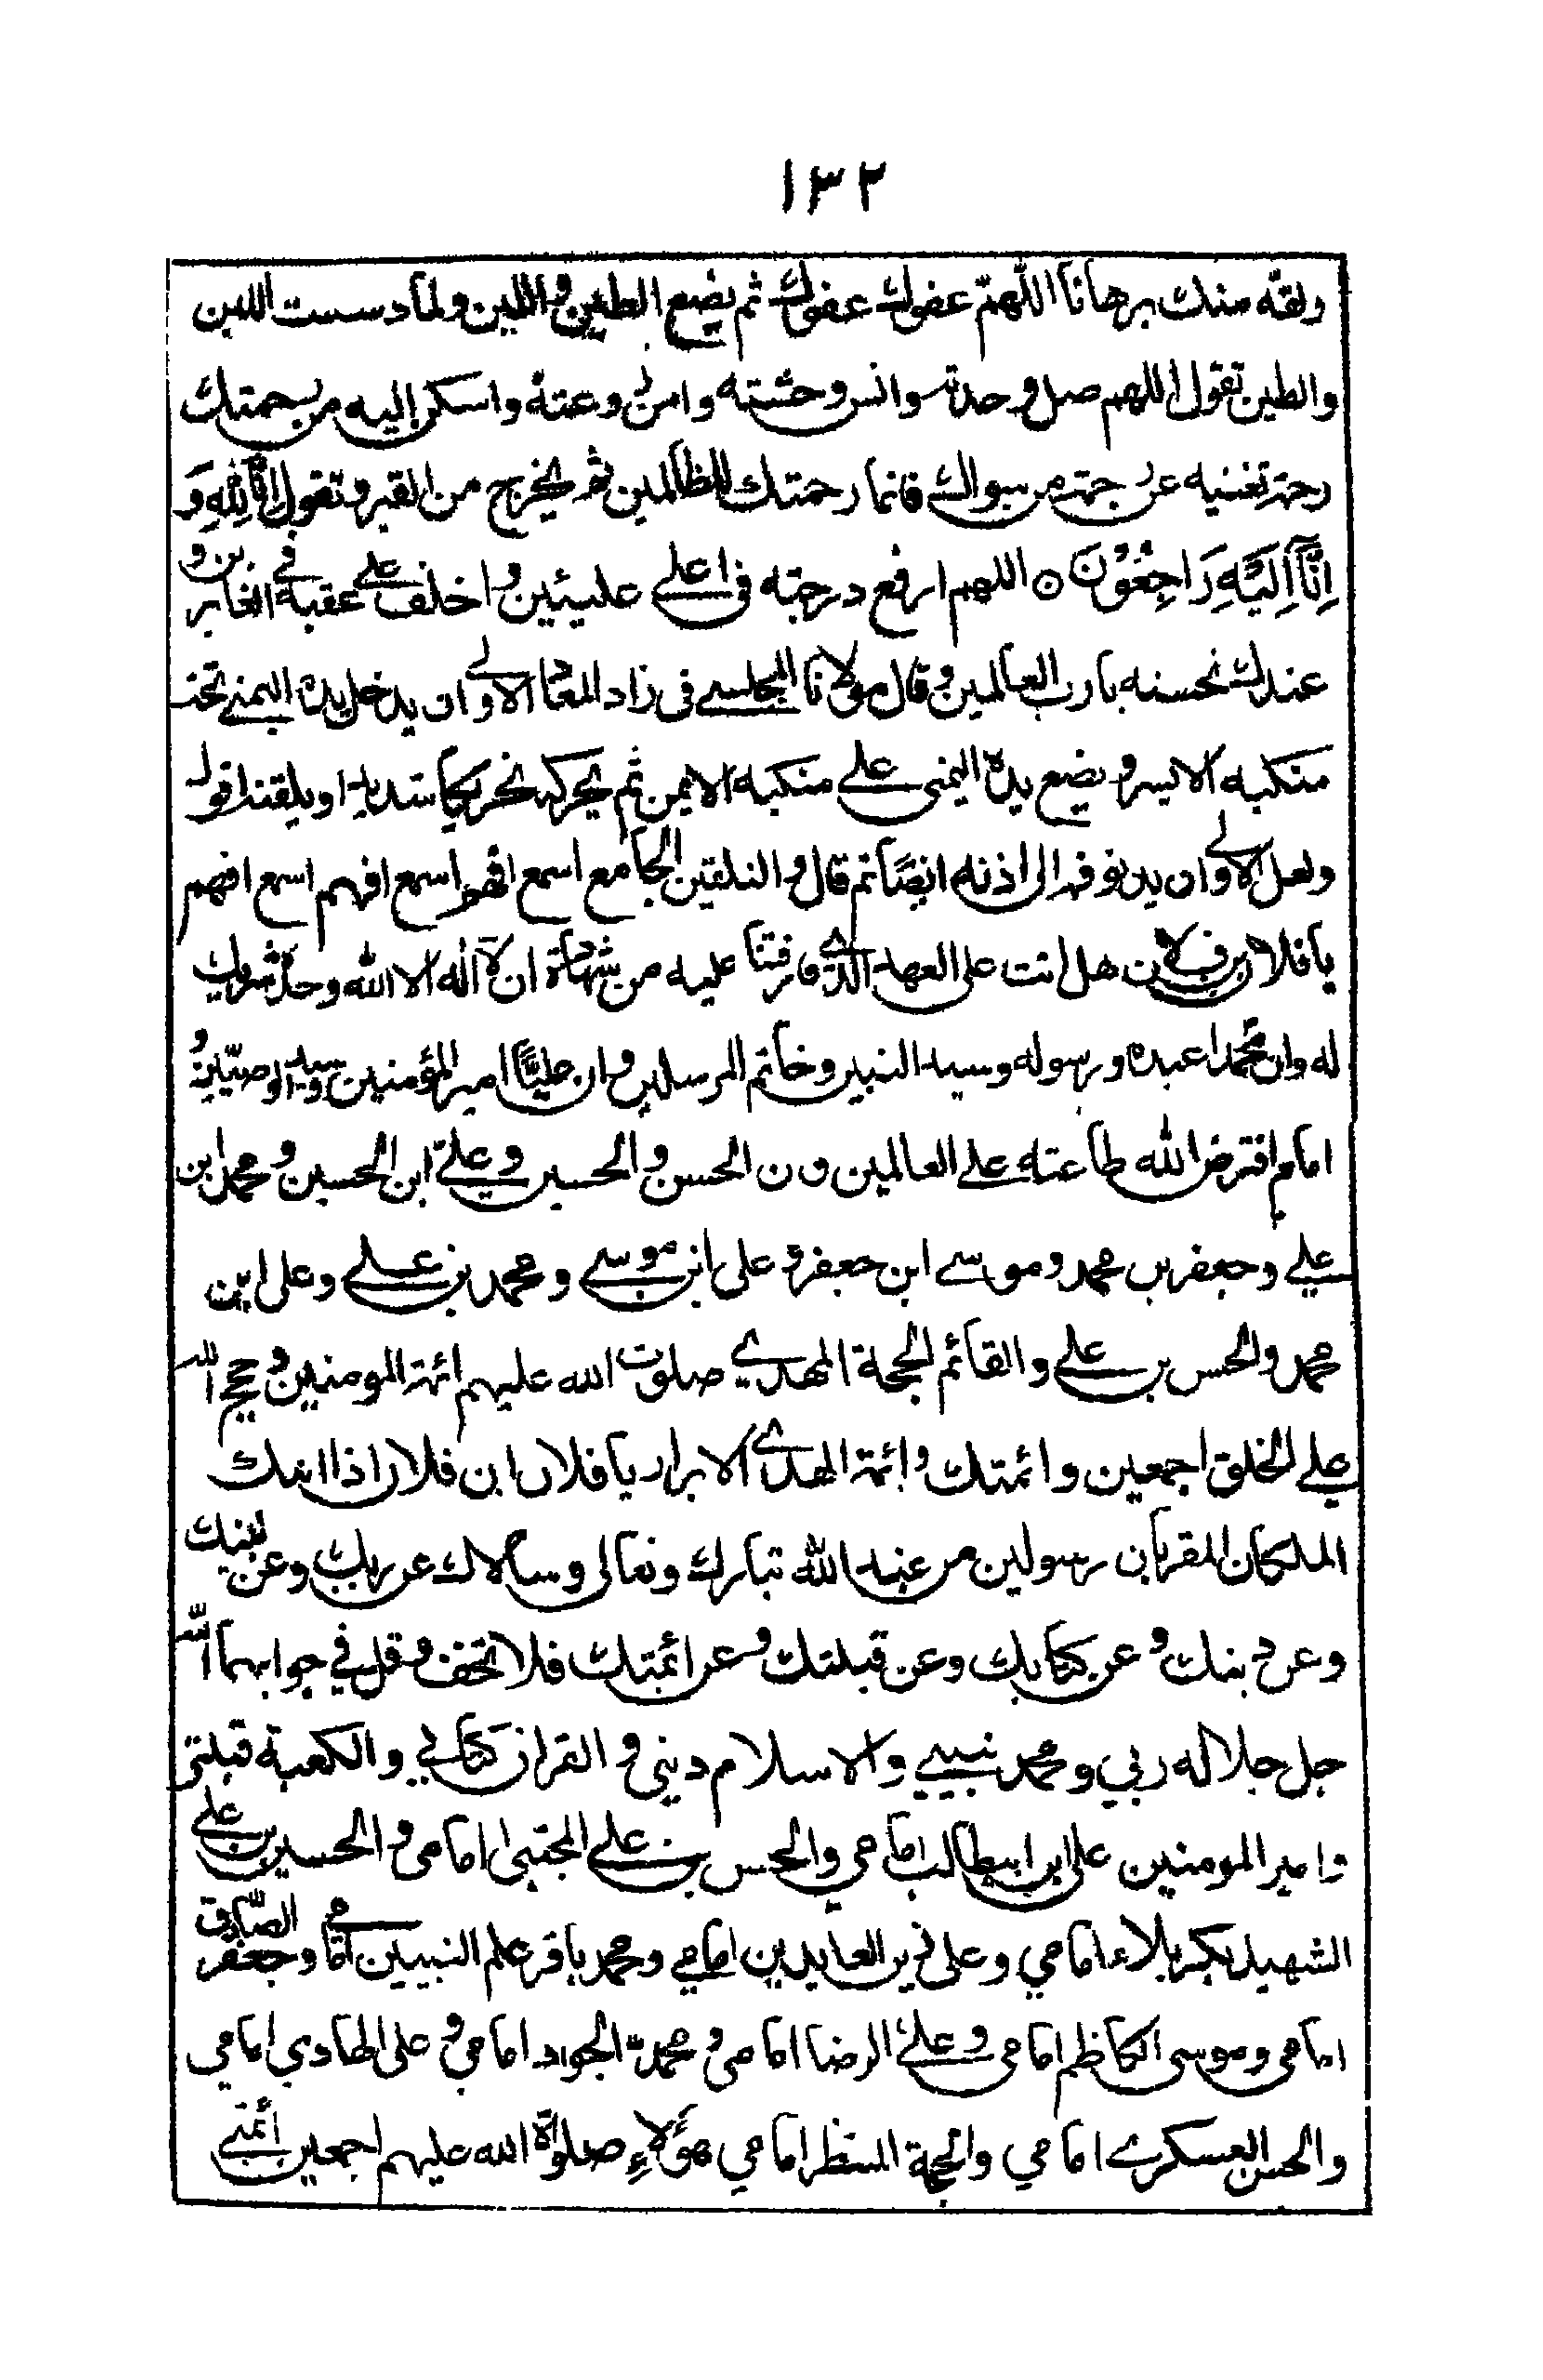 ١٣٢
ولقه منك برهانا اللهم عفوك عفوك ثم يضع الطين واللبن ولما دست اللبن
والطين تقول اللهم صل وحدته وانس وحشته وامن روعته واسكن اليه من رحمتك
رحمة تغنيه عن رحمة من سواك فانما رحمتك للظالمين ثم يخرج من القبر وتقول اِنَّا لِلّٰهِ وَ
اِنَّاۤ اِلَيْهِ رَاجِعُوْنَ ○ اللهم ارفع درجته فی اعلے عليئين واخلف علے عقبه فے الغابرين و
عندك نحتسبه يا رب العالمين وقال مولانا المجلسے فی زاد المعاد الاولے ان يدخل يده اليمنے تحت
منكبه الايسر ويضع يده اليمنی علے منكبه الايمن ثم يحركه تحريكا شديدا ويلقنه اقول
ولعل الاولے ان يدنو فمه الی اذنه ايضًا ثم قال والتلقين الجامع اسمع افهم اسمع افهم اسمع افهم
يا فلان بن فلان هل انت علی العهد الذی فارقتنا عليه من شهادة ان لا اله الا الله وحده لا شريك
له وان محمدا عبده ورسوله وسيد النبين وخاتم المرسلين وان عليًّا امير المؤمنين وسيد الوصيّين و
امام افترض الله طاعته علے العالمين و ن الحسن والحسين وعلیّ ابن الحسين ومحمد ابن
علے وجعفر بن محمد وموسے ابن جعفر و علی ابن موسے ومحمد بن علے وعلی ابن
محمد والحسن بن علے والقائم الحجة المهدے صلوت الله عليهم ائمة المومنين وحجج الله
علے الخلق اجمعين وائمتك وائمة الهدے الابرار يا فلان ابن فلان اذا اتاك
الملكان المقربان رسولين من عند الله تبارك وتعالی وسالاك عن ربك وعن نبيك
وعن دينك وعن كتابك وعن قبلتك وعن ائمتك فلا تخف وقل فی جوابهما الله
جل جلاله ربی ومحمد نبيے والاسلام دينی والقران كتابے والكعبة قبلتی
وامير المومنين علی ابن ابيطالب امامی والحسن بن علے المجتبی امامی والحسين بن علے
الشهيد بكربلاء امامی وعلی زين العابدين امامے ومحمد باقر علم النبيين امامے وجعفر الصّادق
امامی وموسی الكاظم امامی وعلے الرضا امامی ومحمدن الجواد امامی وعلی الهادی امامی
والحسن العسكرے امامی والحجة المنتظر امامی هؤلاءِ صلواة الله عليهم اجمعين أئمتے